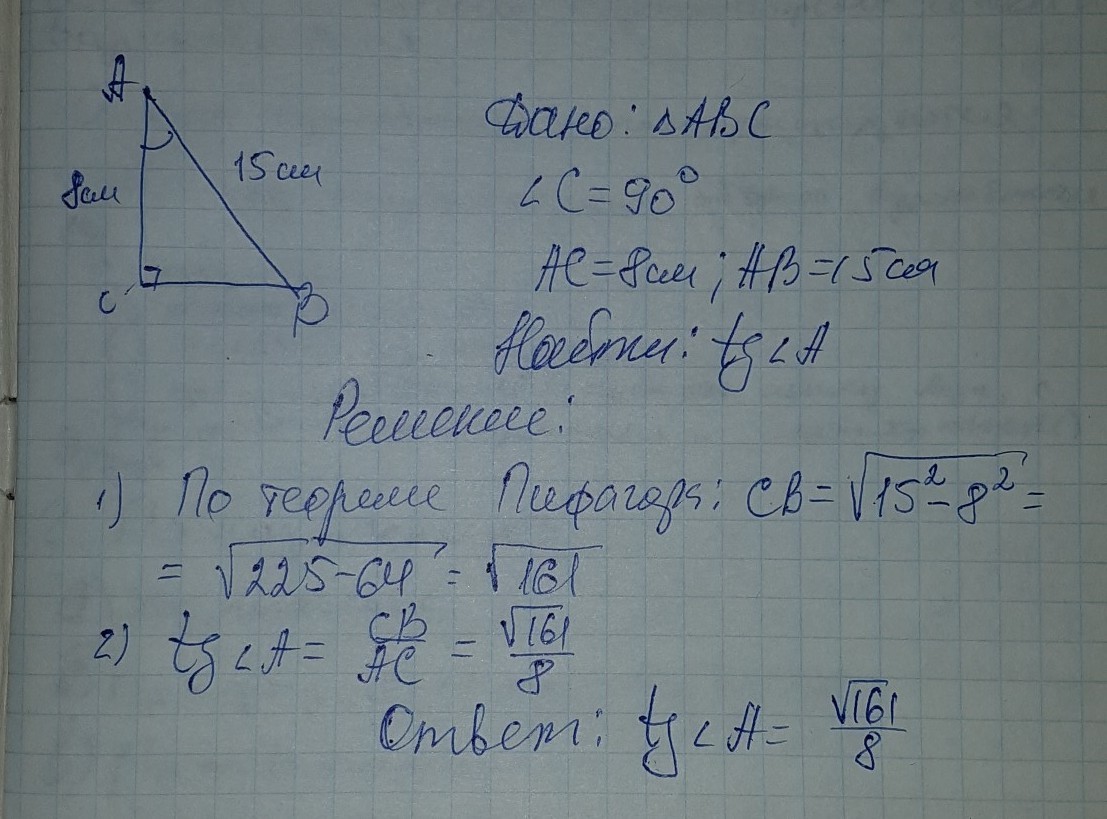 A
15см
8см
C
B
Дано: ΔABC
∠C=90°
AC=8см; AB=15см
Найти: tg∠A
Решение:
1) По теореме Пифагора: CB=√15²-8²=
=√225-64=√161
2) tg∠A= CB/AC = √161/8
Ответ: tg∠A= √161/8